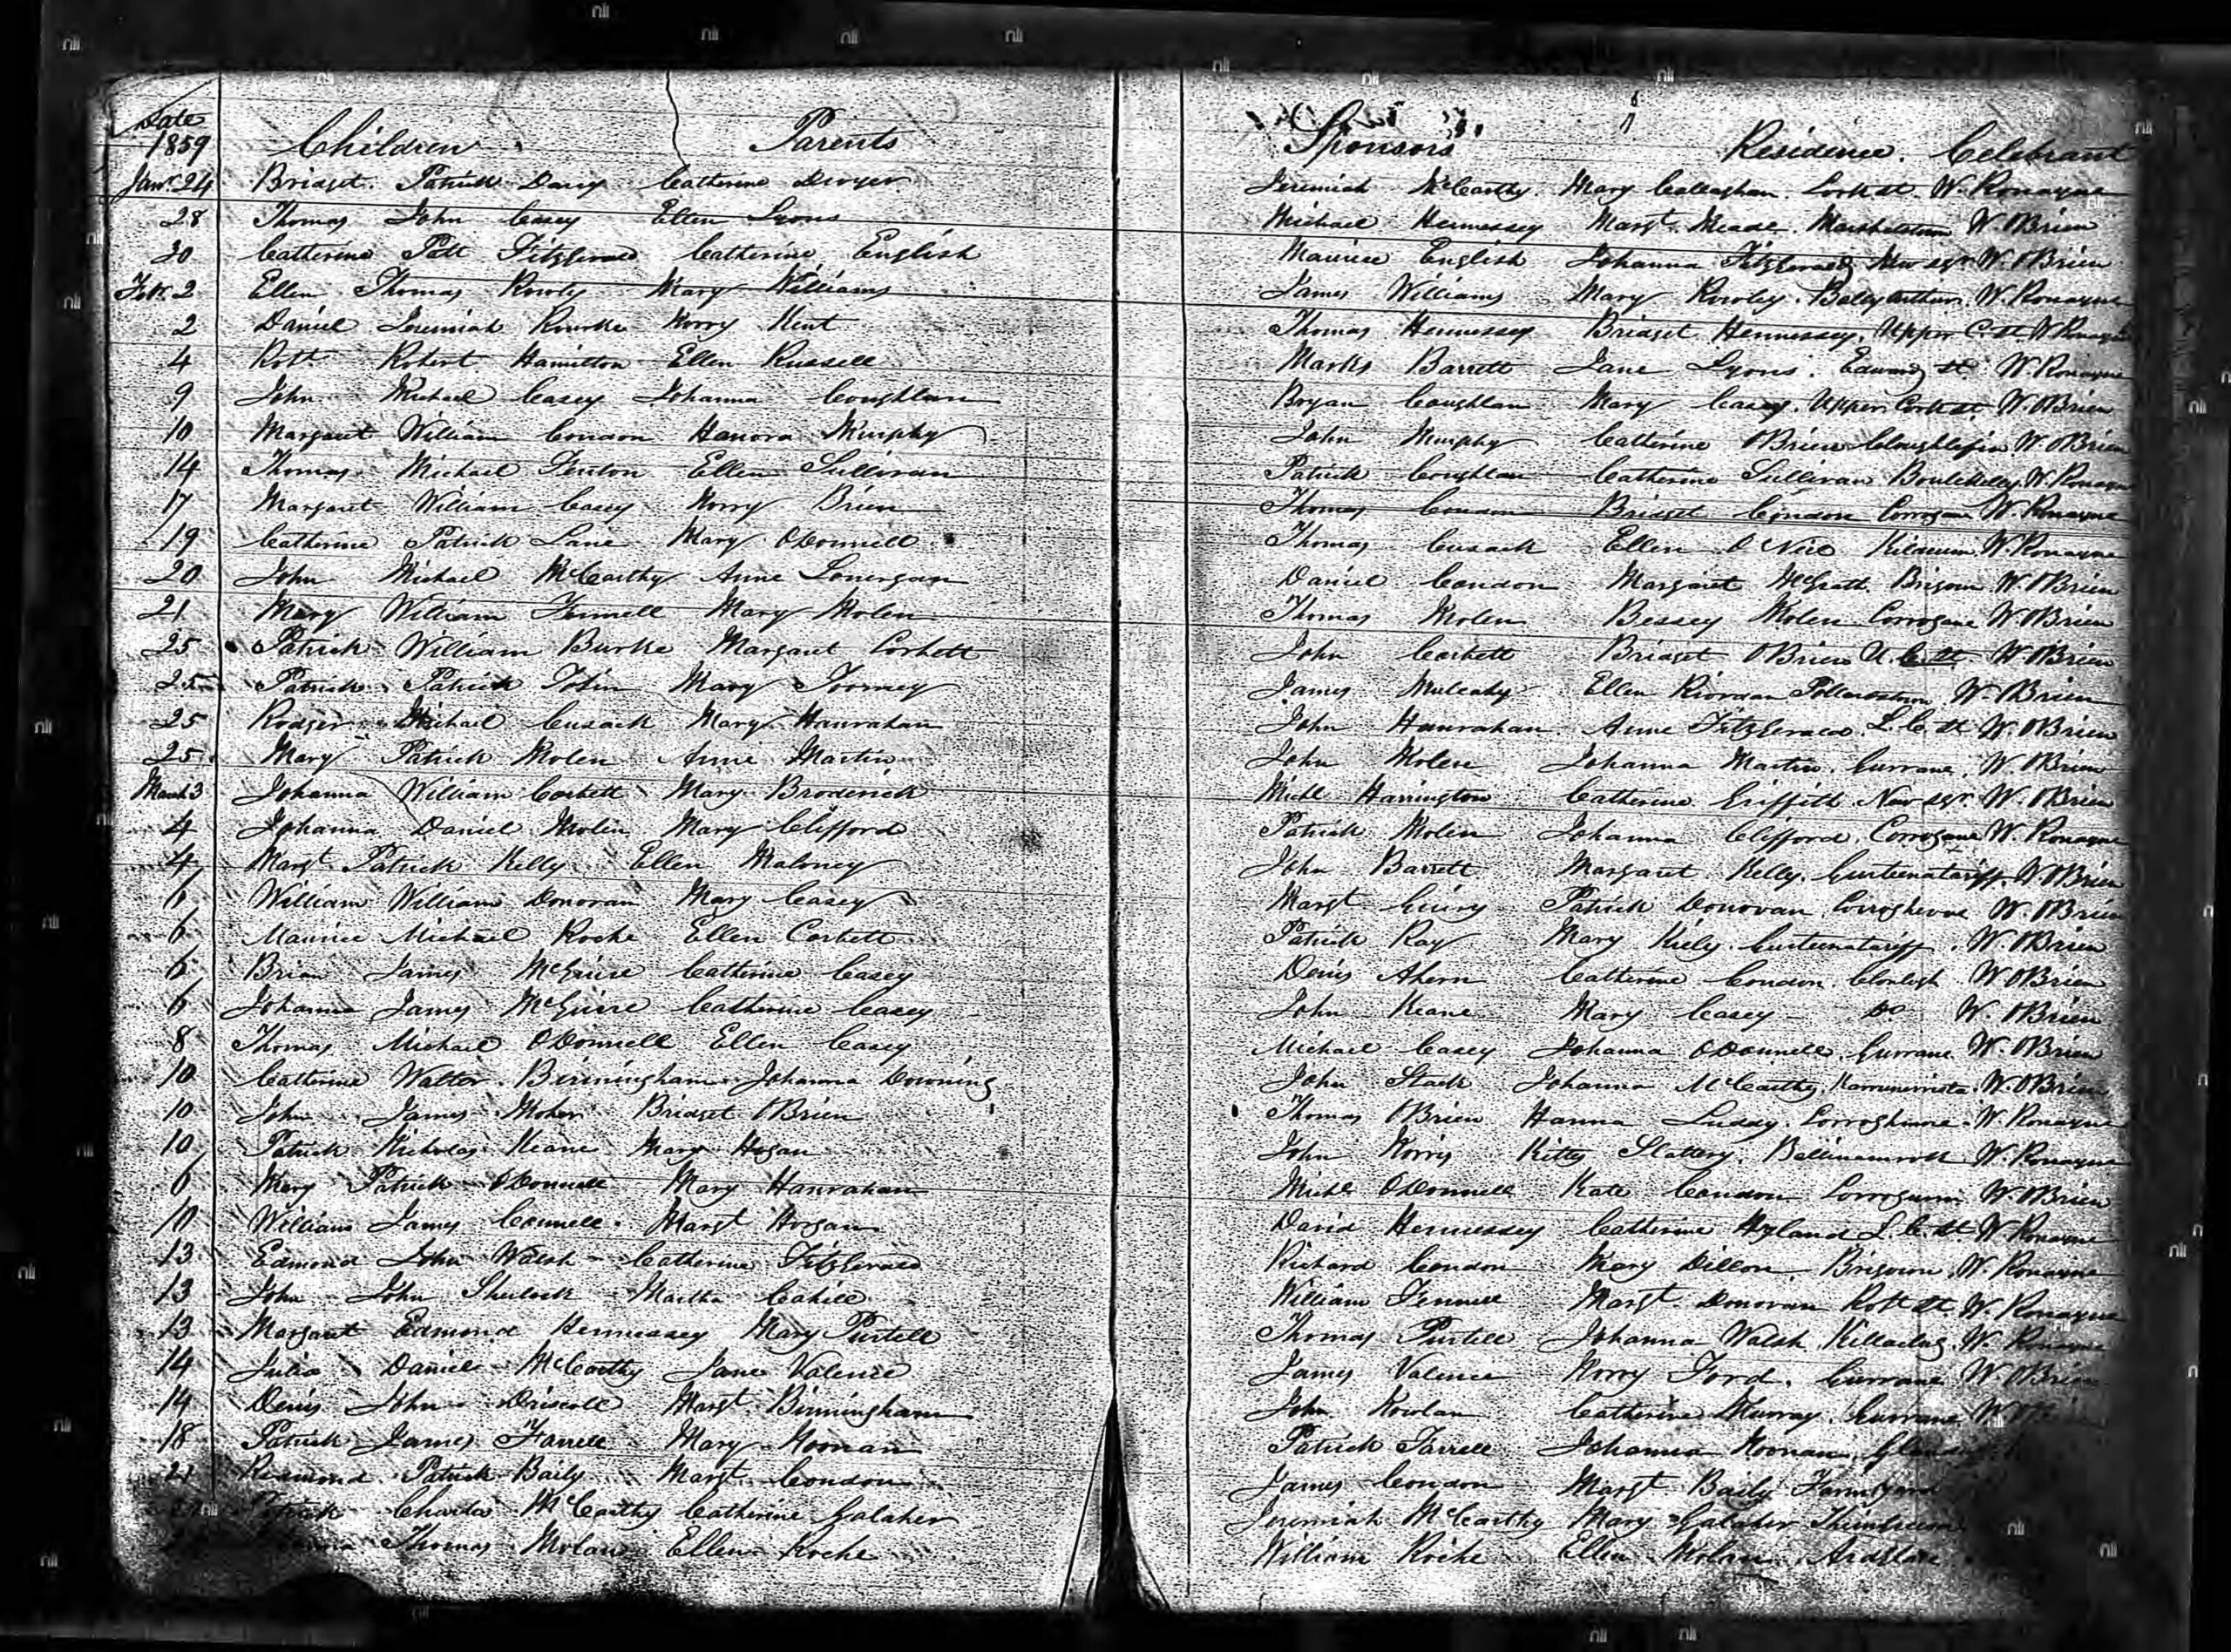 Date
1859 Children Parents Sponsors Residence. Celebrant
Jany. 24 Bridget. Patrick Darcy Catherine Dwyer Jeremiah McCarthy. Mary Callaghan. Cork st. W. Ronayne
28 Thomas John Casey Ellen Lyons Michael Hennessey Margt. Meade. W. OBrien
30 Catherine Patt Fitzgerald Catherine English Maurice English Johanna Fitzgerald New sqr W. OBrien
Feb. 2 Ellen Thomas Rowley Mary Williams James Williams Mary Rowley. Ballyarthur. W. Ronayne
2 Daniel Jeremiah Rourke Norry Kent Thomas Hennessey Bridget Hennessey. Upper C. st. W Ronayne
4 Robt. Robert Hamilton Ellen Russell Marks Barrett Jane Lyons. Edward st. W Ronayne
9 John Michael Casey Johanna Coughlan Bryan Coughlan Mary Casey. Upper Cork st. W. OBrien
10 Margaret William Condon Hanora Murphy John Murphy Catherine OBrien W. OBrien
14 Thomas Michael Fenton Ellen Sullivan Patrick Coughlan Catherine Sullivan W. Ronayne
17 Margaret William Casey Norry Brien Thomas Condon Bridget Condon Corrogane W. Ronayne
19 Catherine Patrick Lane Mary ODonnell Thomas Cusack Ellen O Neil W. Ronayne
20 John Michael McCarthy Anne Lonergan Daniel Condon Margaret McGrath. Brigown W. OBrien
21 Mary William Fennell Mary Molen Thomas Molen Bessey Molen Corrogane W OBrien
25 Patrick William Burke Margaret Corbett John Corbett Bridget OBrien U. C. st. W OBrien
25 Patrick Patrick Tobin Mary Toomey James Mulcahy Ellen Riordan W. OBrien
25 Rodger Michael Cusack Mary Hanrahan John Hanrahan. Anne Fitzgerald. L. C. st W. OBrien
25 Mary Patrick Molen Anne Martin John Molen Johanna Martin. Currane. W. OBrien
March 3 Johanna William Corbett Mary Broderick Michl Harrington Catherine Griffith New sqr. W. OBrien
4 Johanna Daniel Molen Mary Clifford Patrick Molen Johanna Clifford. Corrogane W. Ronayne
4 Margt Patrick Kelly Ellen Maloney John Barrett Margaret Kelly. Gurteenatariff. W OBrien
6 William William Donovan Mary Casey Margt Guiry Patrick Donovan. W. OBrien
6 Maurice Michael Roche Ellen Corbett Patrick Ray Mary Kiely. Gurteenatariff. W. OBrien
6 Brian James McGuire Catherine Casey Denis Ahern Catherine Condon. Clonlogh W. OBrien
6 Johanna James McGuire Catherine Casey John Keane Mary Casey Do W. OBrien
8 Thomas Michael ODonnell Ellen Casey Michael Casey Johanna ODonnell. Currane W. OBrien
10 Catherine Walter Birmingham Johanna Downing John Stack Johanna McCarthy. W. OBrien
10 John James Moher Bridget OBrien Thomas OBrien Hanna Luddy. W. Ronayne
10 Patrick Nicholas Keane Mary Hogan John Norris Kitty Slattery. W. Ronayne
6 Mary Patrick ODonnell Mary Hanrahan Michl ODonnell Kate Condon W. OBrien
10 William James Connell. Margt Horgan David Hennessey Catherine Hyland L. C. st W. Ronayne
13 Edmond John Walsh Catherine Fitzgerald Richard Condon Mary Dillon. Brigown. W. Ronayne
13 John John Sherlock Martha Cahill William Fennell Margt. Donovan Robt st. W. Ronayne
13 Margaret Edmond Hennessey Mary Purtell Thomas Purtell Johanna Walsh. W. Ronayne
14 Julia Daniel McCarthy Jane Valence James Valence Norry Ford. Currane W OBrien
14 Denis John Driscoll Margt. Birmingham John Nowlan Catherine Murray. Currane
18 Patrick James Farrell Mary Noonan Patrick Farrell Johanna Noonan
21 Redmond Patrick Baily Margt Condon James Condon Margt Baily Farmyard
Charles McCarthy Catherine Galaher Jeremiah McCarthy Mary Galaher
Thomas Molan Ellen Roche William Roche Ellen Molan